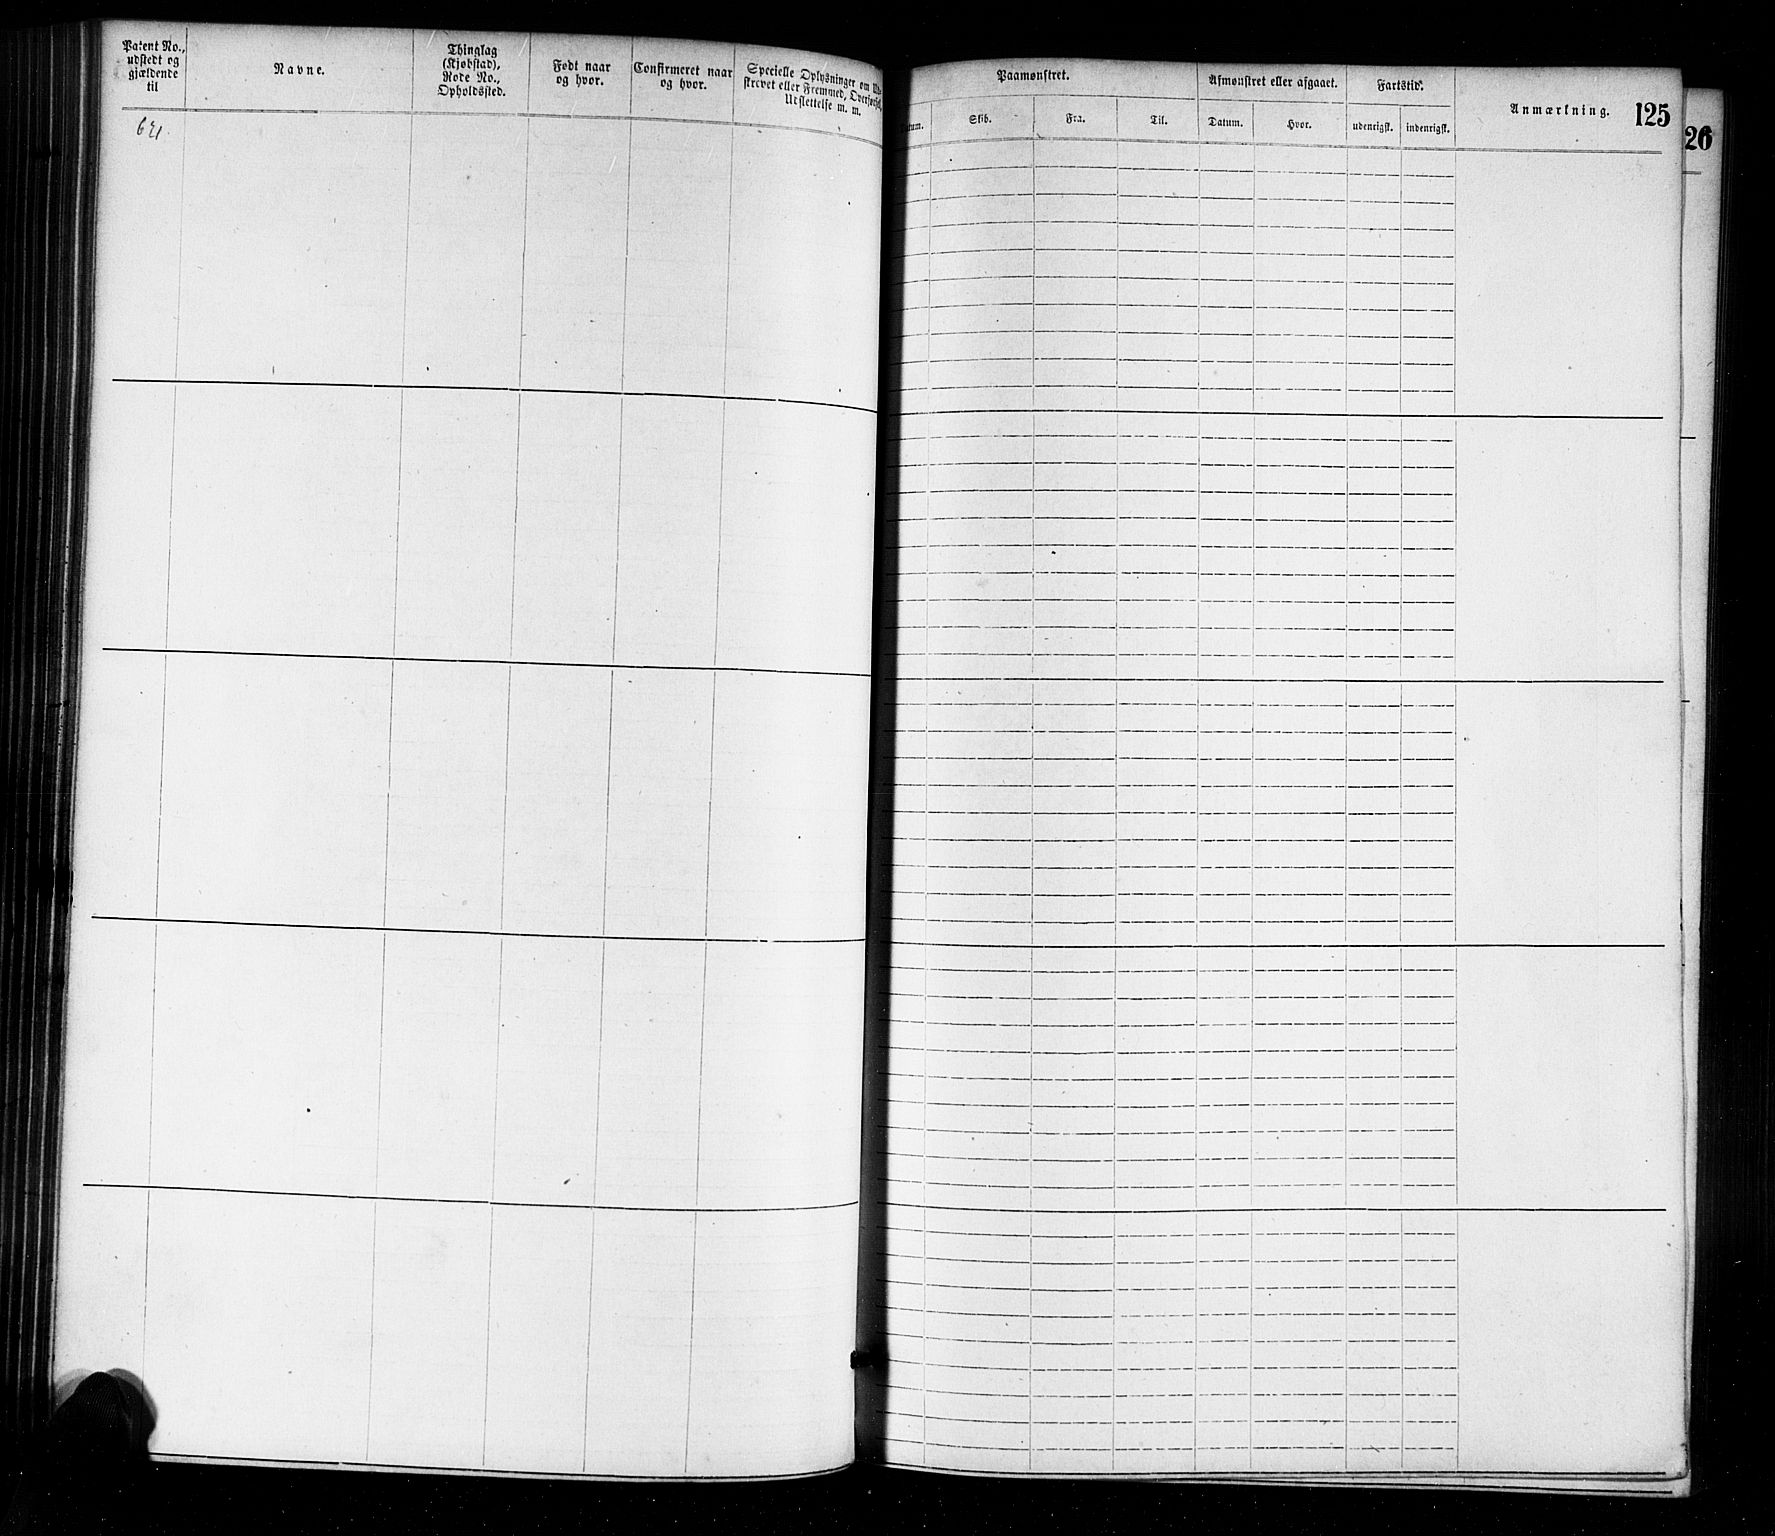 Patent No.,
udstedt og
gjældende
til
Navne.
Thinglag
(Kjøbstad),
Rode No.,
Opholdssted.
Født naar
og hvor.
Confirmeret naar
og hvor.
Specielle Oplysninger om
skrevet eller Fremmed,
Udslettelse m. m.
621
Paamønstret.
Skib.
Fra.
Til.
Afmønstret eller afgaaet.
Datum.
Hvor.
Fartstid.
udenrigsk.
indenrigsk.
Anmærkning.
125
26